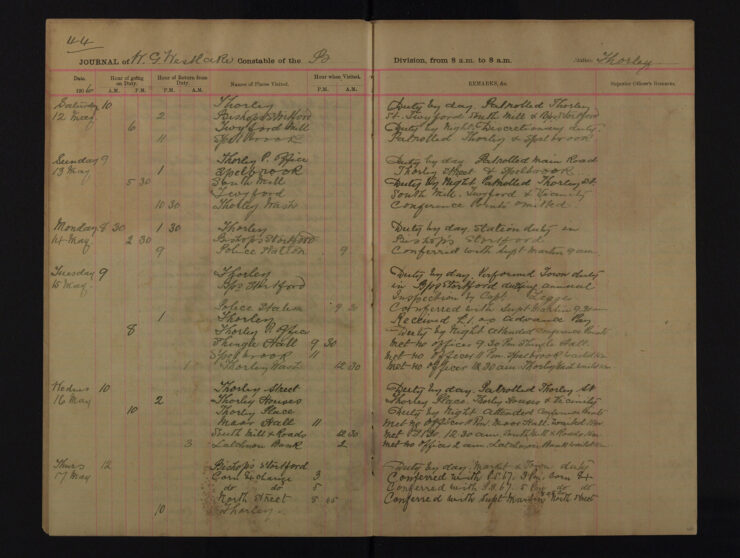 44
JOURNAL of W. G. Westlake Constable of the B Division, from 8 a.m. to 8 a.m. Station Thorley
Date. Hour of going on Duty. Hour of Return from Duty. Names of Places Visited. Hour when Visited. REMARKS, &c. Superior Officer's Remarks.
1906 A.M. P.M. P.M. A.M. P.M. A.M.
Saturday 10 Thorley Duty by day. Patrolled Thorley
12 May 2 Bishops Stortford St. Twyford South Mill & Bps Stortford
6 Twyford Mill Duty by Night Discretionary duty
11 Spelbrook Patrolled Thorley & Spelbrook
Sunday 9 Thorley P. Office Duty by day Patrolled Main Road
13 May 1 Spelbrook Thorley Street & Spelbrook
5 30 South Mill Duty by Night Patrolled Thorley St.
Twyford South Mill. Twyford & Vicinity
10 30 Thorley Wash Conference Points omitted
Monday 8 30 1 30 Thorley Duty by day Station duty in
14 May 2 30 Bishops Stortford Bishops Stortford
9 Police Station 9 Conferred with Supt Martin 9 am
Tuesday 9 Thorley Duty by day. Performed Town duty
15 May Bps Stortford in Bps Stortford during annual
Inspection by Capt
Police Station 9 30 Conferred with Supt Martin 9.30 am
1 Thorley Received £1. as Advance Pay
8 Thorley P. Office Duty by Night attended Conference Points
Thingle Hall 9 30 Met no officer 9.30 Pm Thingle Hall
Spelbrook 11 Met no officer 11 Pm Spelbrook
1 Thorley Wash 12 30 Met no officer 12.30 am Thorley Wash
Wednes 10 Thorley Street Duty by day. Patrolled Thorley St
16 May 2 Thorley Houses Thorley Place. Thorley Houses & Vicinity
10 Thorley Place Duty by Night attended Conference Points
Moor Hall 11 Met no officer 11 Pm. Moor Hall.
South Mill & Roads 12 30 Met 12.30 am. South Mill & Roads
3 Latchmore Bank 2 Met no officer 2 am Latchmore Bank
Thurs 12 Bishops Stortford Duty by day. Market & Town duty
17 May Corn Exchange 3 Conferred with P.S. 67. 3 Pm. Corn Ex
do do 5 Conferred with P.S. 67. 5 Pm do do
North Street 5 45 Conferred with Supt Martin North Street
10 Thorley